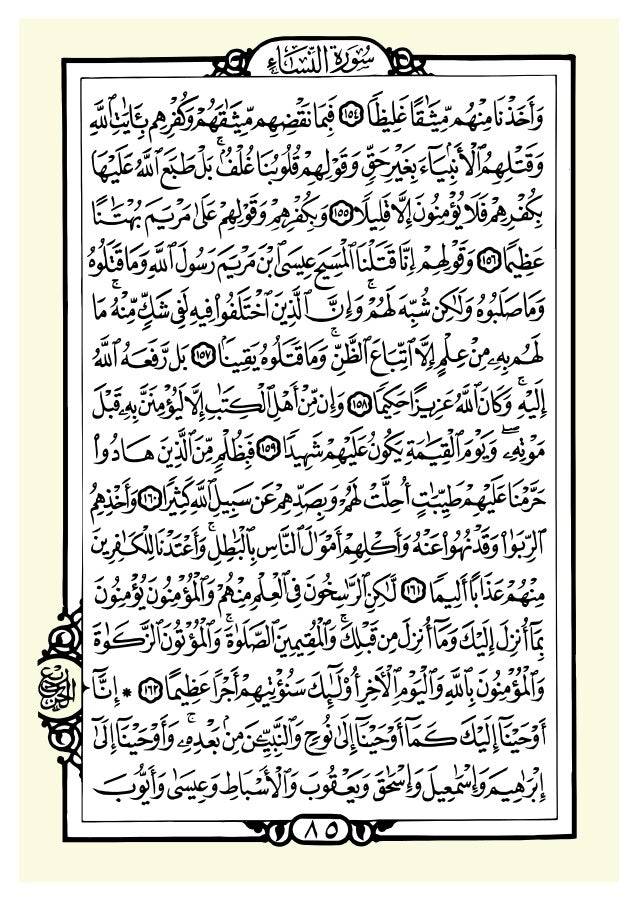 سُورَةُ النِّسَاءِ
وَأَخَذْنَا مِنْهُم مِّيثَٰقًا غَلِيظًا ١٥٤ فَبِمَا نَقْضِهِم مِّيثَٰقَهُمْ وَكُفْرِهِم بِـَٔايَٰتِ ٱللَّهِ
وَقَتْلِهِمُ ٱلْأَنۢبِيَآءَ بِغَيْرِ حَقٍّ وَقَوْلِهِمْ قُلُوبُنَا غُلْفٌۢ ۚ بَلْ طَبَعَ ٱللَّهُ عَلَيْهَا
بِكُفْرِهِمْ فَلَا يُؤْمِنُونَ إِلَّا قَلِيلًا ١٥٥ وَبِكُفْرِهِمْ وَقَوْلِهِمْ عَلَىٰ مَرْيَمَ بُهْتَٰنًا
عَظِيمًا ١٥٦ وَقَوْلِهِمْ إِنَّا قَتَلْنَا ٱلْمَسِيحَ عِيسَى ٱبْنَ مَرْيَمَ رَسُولَ ٱللَّهِ وَمَا قَتَلُوهُ
وَمَا صَلَبُوهُ وَلَٰكِن شُبِّهَ لَهُمْ ۚ وَإِنَّ ٱلَّذِينَ ٱخْتَلَفُوا۟ فِيهِ لَفِى شَكٍّ مِّنْهُ ۚ مَا
لَهُم بِهِۦ مِنْ عِلْمٍ إِلَّا ٱتِّبَاعَ ٱلظَّنِّ ۚ وَمَا قَتَلُوهُ يَقِينًۢا ١٥٧ بَل رَّفَعَهُ ٱللَّهُ
إِلَيْهِ ۚ وَكَانَ ٱللَّهُ عَزِيزًا حَكِيمًا ١٥٨ وَإِن مِّنْ أَهْلِ ٱلْكِتَٰبِ إِلَّا لَيُؤْمِنَنَّ بِهِۦ قَبْلَ
مَوْتِهِۦ ۖ وَيَوْمَ ٱلْقِيَٰمَةِ يَكُونُ عَلَيْهِمْ شَهِيدًا ١٥٩ فَبِظُلْمٍ مِّنَ ٱلَّذِينَ هَادُوا۟
حَرَّمْنَا عَلَيْهِمْ طَيِّبَٰتٍ أُحِلَّتْ لَهُمْ وَبِصَدِّهِمْ عَن سَبِيلِ ٱللَّهِ كَثِيرًا ١٦٠ وَأَخْذِهِمُ
ٱلرِّبَوٰا۟ وَقَدْ نُهُوا۟ عَنْهُ وَأَكْلِهِمْ أَمْوَٰلَ ٱلنَّاسِ بِٱلْبَٰطِلِ ۚ وَأَعْتَدْنَا لِلْكَٰفِرِينَ
مِنْهُمْ عَذَابًا أَلِيمًا ١٦١ لَّٰكِنِ ٱلرَّٰسِخُونَ فِى ٱلْعِلْمِ مِنْهُمْ وَٱلْمُؤْمِنُونَ يُؤْمِنُونَ
بِمَآ أُنزِلَ إِلَيْكَ وَمَآ أُنزِلَ مِن قَبْلِكَ ۚ وَٱلْمُقِيمِينَ ٱلصَّلَوٰةَ ۚ وَٱلْمُؤْتُونَ ٱلزَّكَوٰةَ
وَٱلْمُؤْمِنُونَ بِٱللَّهِ وَٱلْيَوْمِ ٱلْأَخِرِ أُو۟لَٰٓئِكَ سَنُؤْتِيهِمْ أَجْرًا عَظِيمًا ١٦٢ * إِنَّآ
أَوْحَيْنَآ إِلَيْكَ كَمَآ أَوْحَيْنَآ إِلَىٰ نُوحٍ وَٱلنَّبِيِّـۧنَ مِنۢ بَعْدِهِۦ ۚ وَأَوْحَيْنَآ إِلَىٰٓ
إِبْرَٰهِيمَ وَإِسْمَٰعِيلَ وَإِسْحَٰقَ وَيَعْقُوبَ وَٱلْأَسْبَاطِ وَعِيسَىٰ وَأَيُّوبَ
٨٥